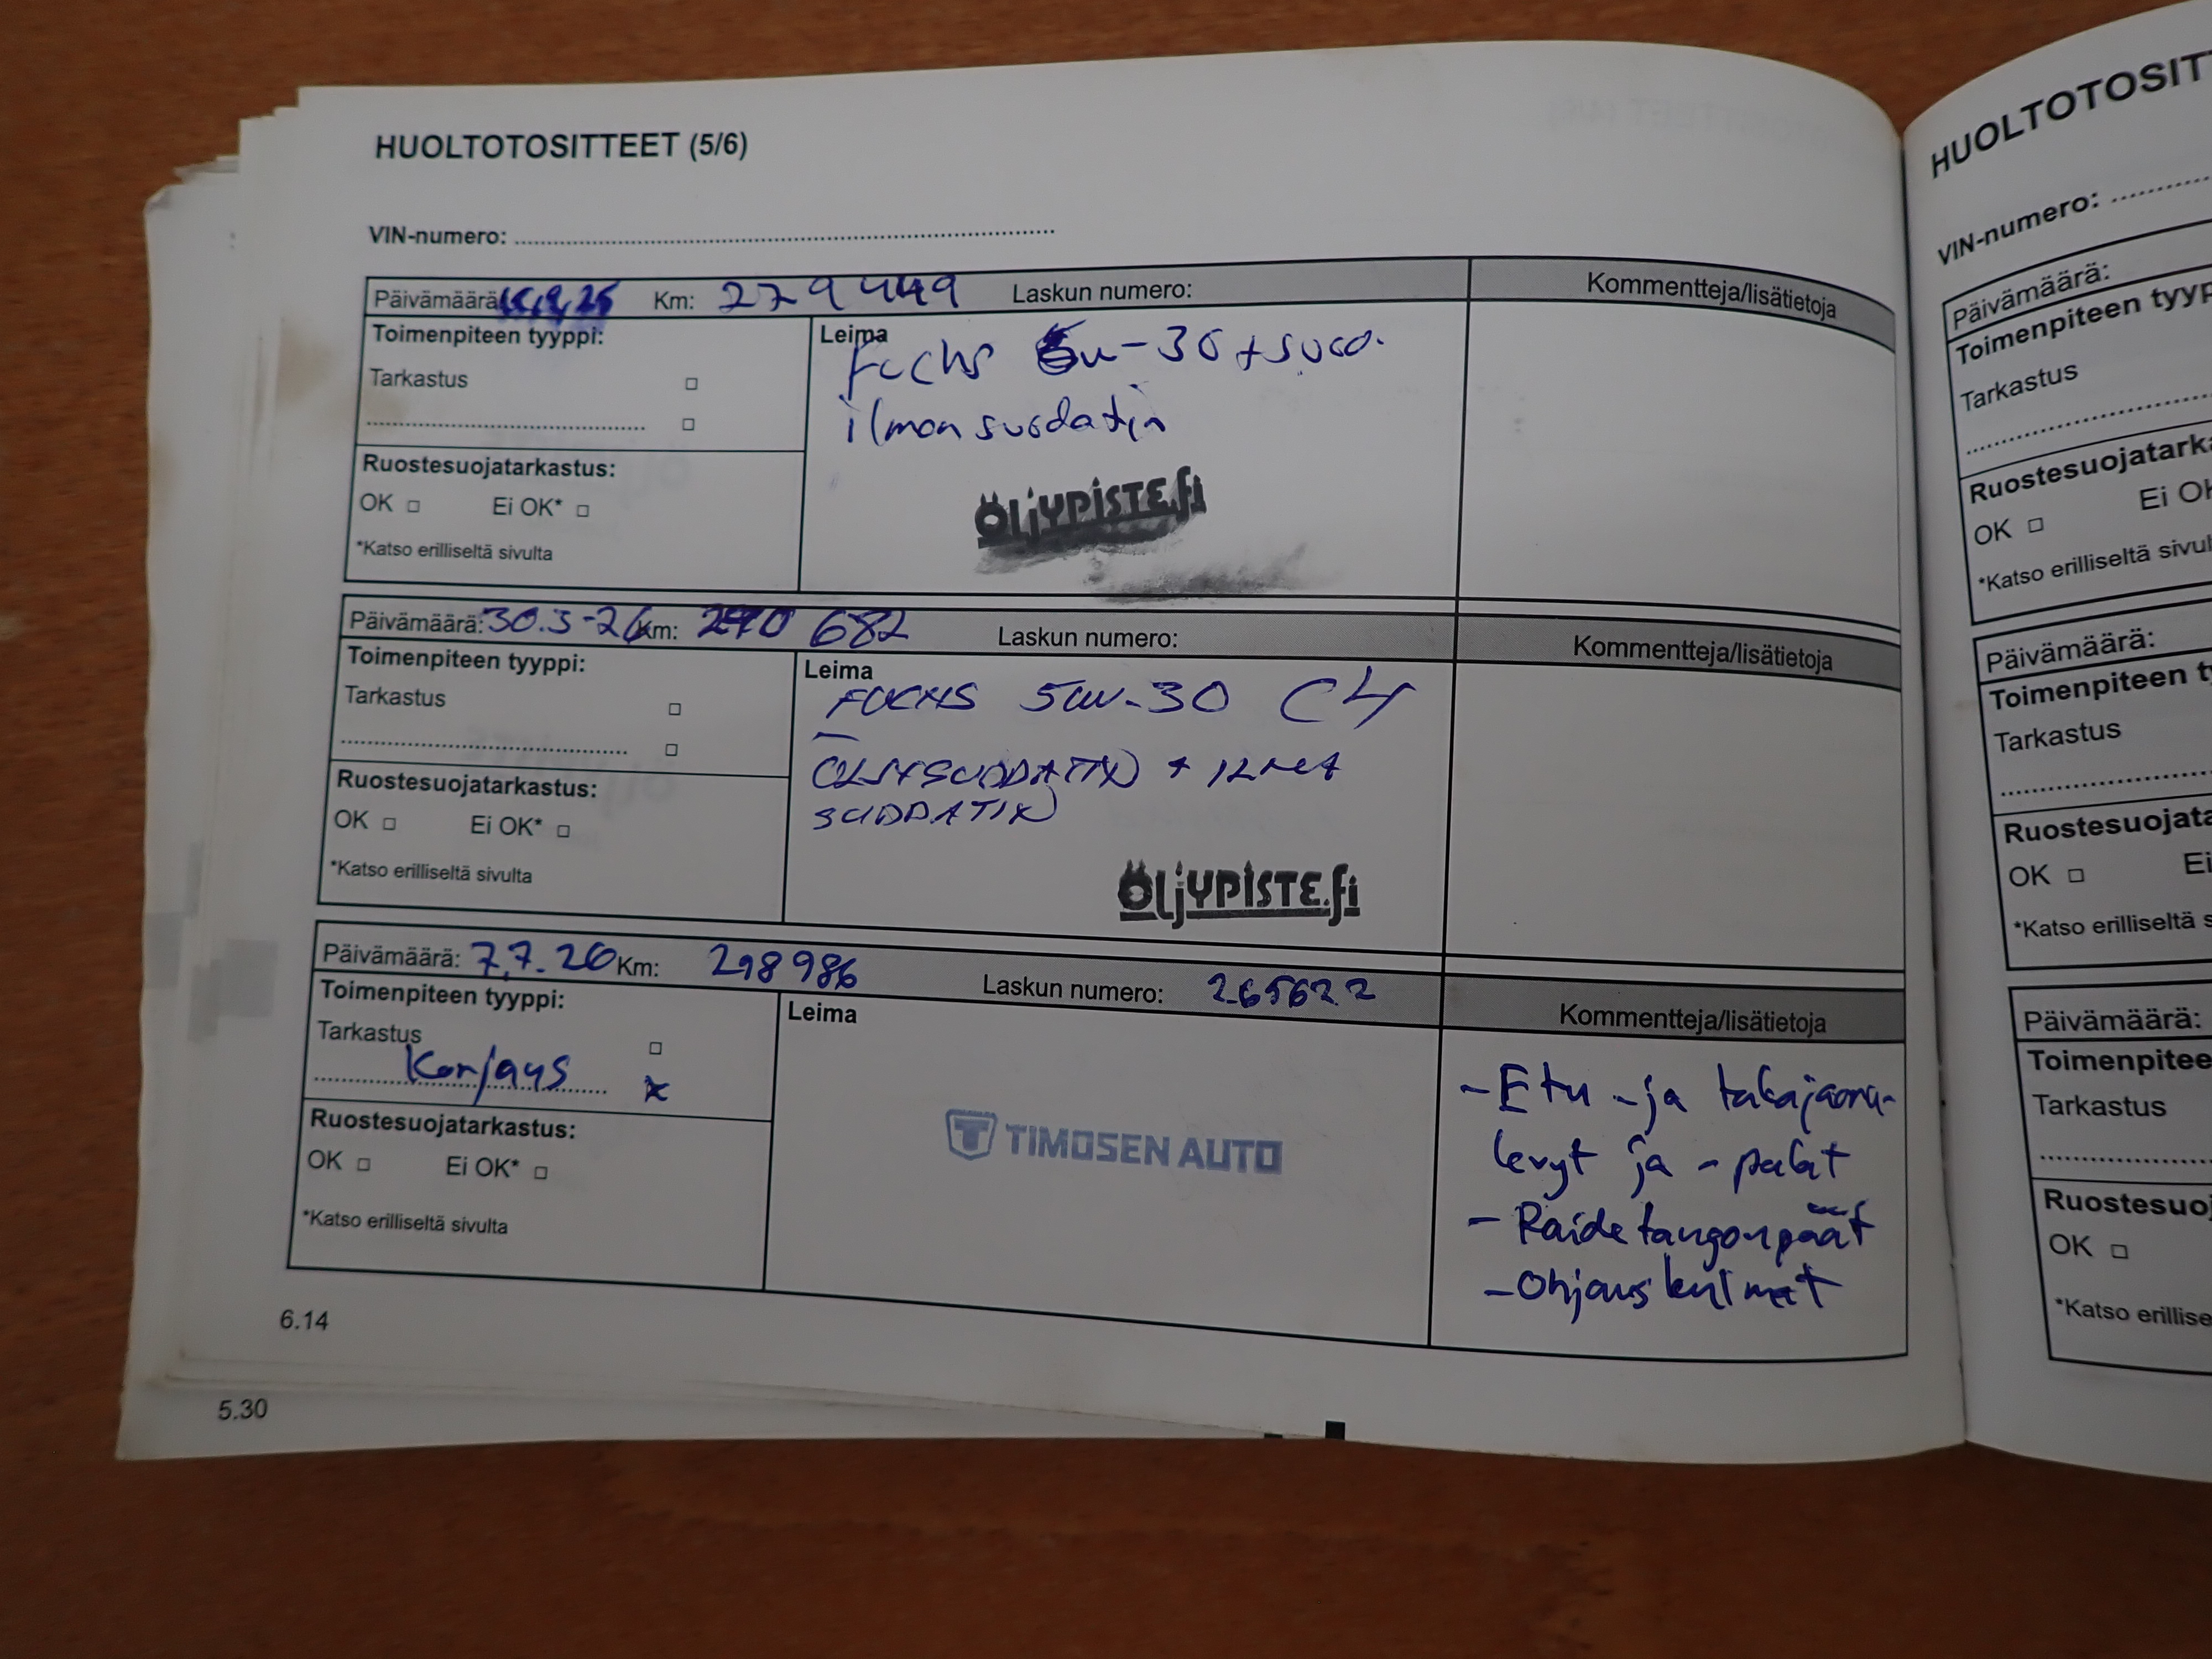 HUOLTOTOSITTEET (5/6)
VIN-numero:
Päivämäärä: Km: 279449 Laskun numero: Kommentteja/lisätietoja
Toimenpiteen tyyppi:
Tarkastus
Ruostesuojatarkastus:
OK Ei OK*
*Katso erilliseltä sivulta
Leima
Fuchs 5w-30 + suod.
ilmansuodatin
ÖljYPISTE.fi
Päivämäärä: 30.3-26 Km: 682 Laskun numero: Kommentteja/lisätietoja
Toimenpiteen tyyppi:
Tarkastus
Ruostesuojatarkastus:
OK Ei OK*
*Katso erilliseltä sivulta
Leima
FUCHS 5W-30 C4
ÖLJYSUODATIN + ILMA
SUODATIN
ÖljYPISTE.fi
Päivämäärä: 7.7.26 Km: 298986 Laskun numero: 265622 Kommentteja/lisätietoja
Toimenpiteen tyyppi:
Tarkastus
Korjaus x
Ruostesuojatarkastus:
OK Ei OK*
*Katso erilliseltä sivulta
Leima
TIMOSEN AUTO
- Etu -ja takajarru-
levyt ja -palat
- Raidetangonpäät
- Ohjauskulmat
6.14
5.30
HUOLTOTOSITT
VIN-numero:
Päivämäärä:
Toimenpiteen tyyp
Tarkastus
Ruostesuojatarka
OK Ei OK
*Katso erilliseltä sivul
Päivämäärä:
Toimenpiteen ty
Tarkastus
Ruostesuojata
OK Ei
*Katso erilliseltä s
Päivämäärä:
Toimenpitee
Tarkastus
Ruostesuoj
OK
*Katso erillise